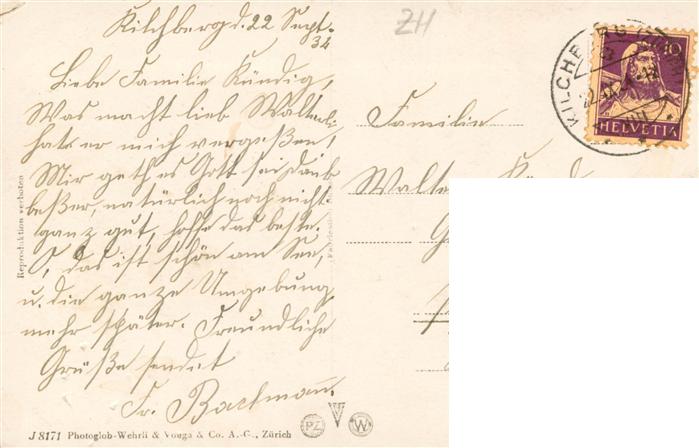 Kilchberg d. 22 Sept.
34
ZH
Liebe Familie Kündig,
Was macht lieb Walterli
hat er mich vergeßen,
Mir geth es Gott sei dank
beßer, natürlich noch nicht
ganz gut, hoffe das beste.
O, das ist schön am See,
u. die ganze Umgebung,
mehr später. Freundliche
Grüße sendet
Fr. Bachmann.
Familie
Walter
KILCHBERG
10
HELVETIA
Reproduktion verboten
J 8171 Photoglob-Wehrli & Vouga & Co. A.-G., Zürich
PZ
W